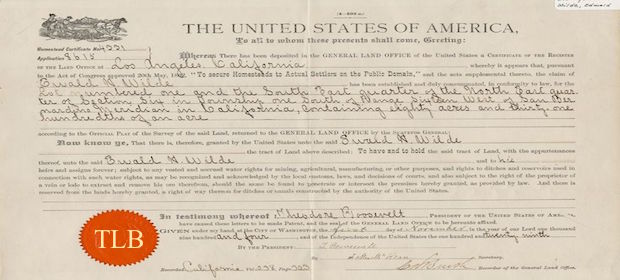 Wilde, Edward
(4—404.)
THE UNITED STATES OF AMERICA,
To all to whom these presents shall come, Greeting:
Homestead Certificate No. 4221
Application 8615
Whereas There has been deposited in the GENERAL LAND OFFICE of the United States a CERTIFICATE OF THE REGISTER
OF THE LAND OFFICE AT Los Angeles, California, whereby it appears that, pursuant
to the Act of Congress approved 20th May, 1862, "To secure Homesteads to Actual Settlers on the Public Domain," and the acts supplemental thereto, the claim of
Ewald N. Wilde has been established and duly consummated, in conformity to law, for the
Lot numbered one and the South East quarter of the North East quar-
ter of Section Six in Township one South of Range Sixteen West of San Ber-
nardino Meridian in California, containing eighty acres and thirty one
hundredths of an acre
according to the Official Plat of the Survey of the said Land, returned to the GENERAL LAND OFFICE by the SURVEYOR GENERAL:
Now know ye, That there is, therefore, granted by the United States unto the said Ewald N. Wilde
the tract of Land above described: To have and to hold the said tract of Land, with the appurtenances
thereof, unto the said Ewald N. Wilde and to his
heirs and assigns forever; subject to any vested and accrued water rights for mining, agricultural, manufacturing, or other purposes, and rights to ditches and reservoirs used in
connection with such water rights, as may be recognized and acknowledged by the local customs, laws, and decisions of courts, and also subject to the right of the proprietor of
a vein or lode to extract and remove his ore therefrom, should the same be found to penetrate or intersect the premises hereby granted, as provided by law. And there is
reserved from the lands hereby granted, a right of way thereon for ditches or canals constructed by the authority of the United States.
In testimony whereof I, Theodore Roosevelt, PRESIDENT OF THE UNITED STATES OF AMERICA,
have caused these letters to be made Patent, and the seal of the GENERAL LAND OFFICE to be hereunto affixed.
GIVEN under my hand at the CITY OF WASHINGTON, the first day of November, in the year of our Lord one thousand
nine hundred and four, and of the Independence of the United States the one hundred and twenty ninth
BY THE PRESIDENT: T. Roosevelt
Recorded California
Recorder of the General Land Office.
TLB